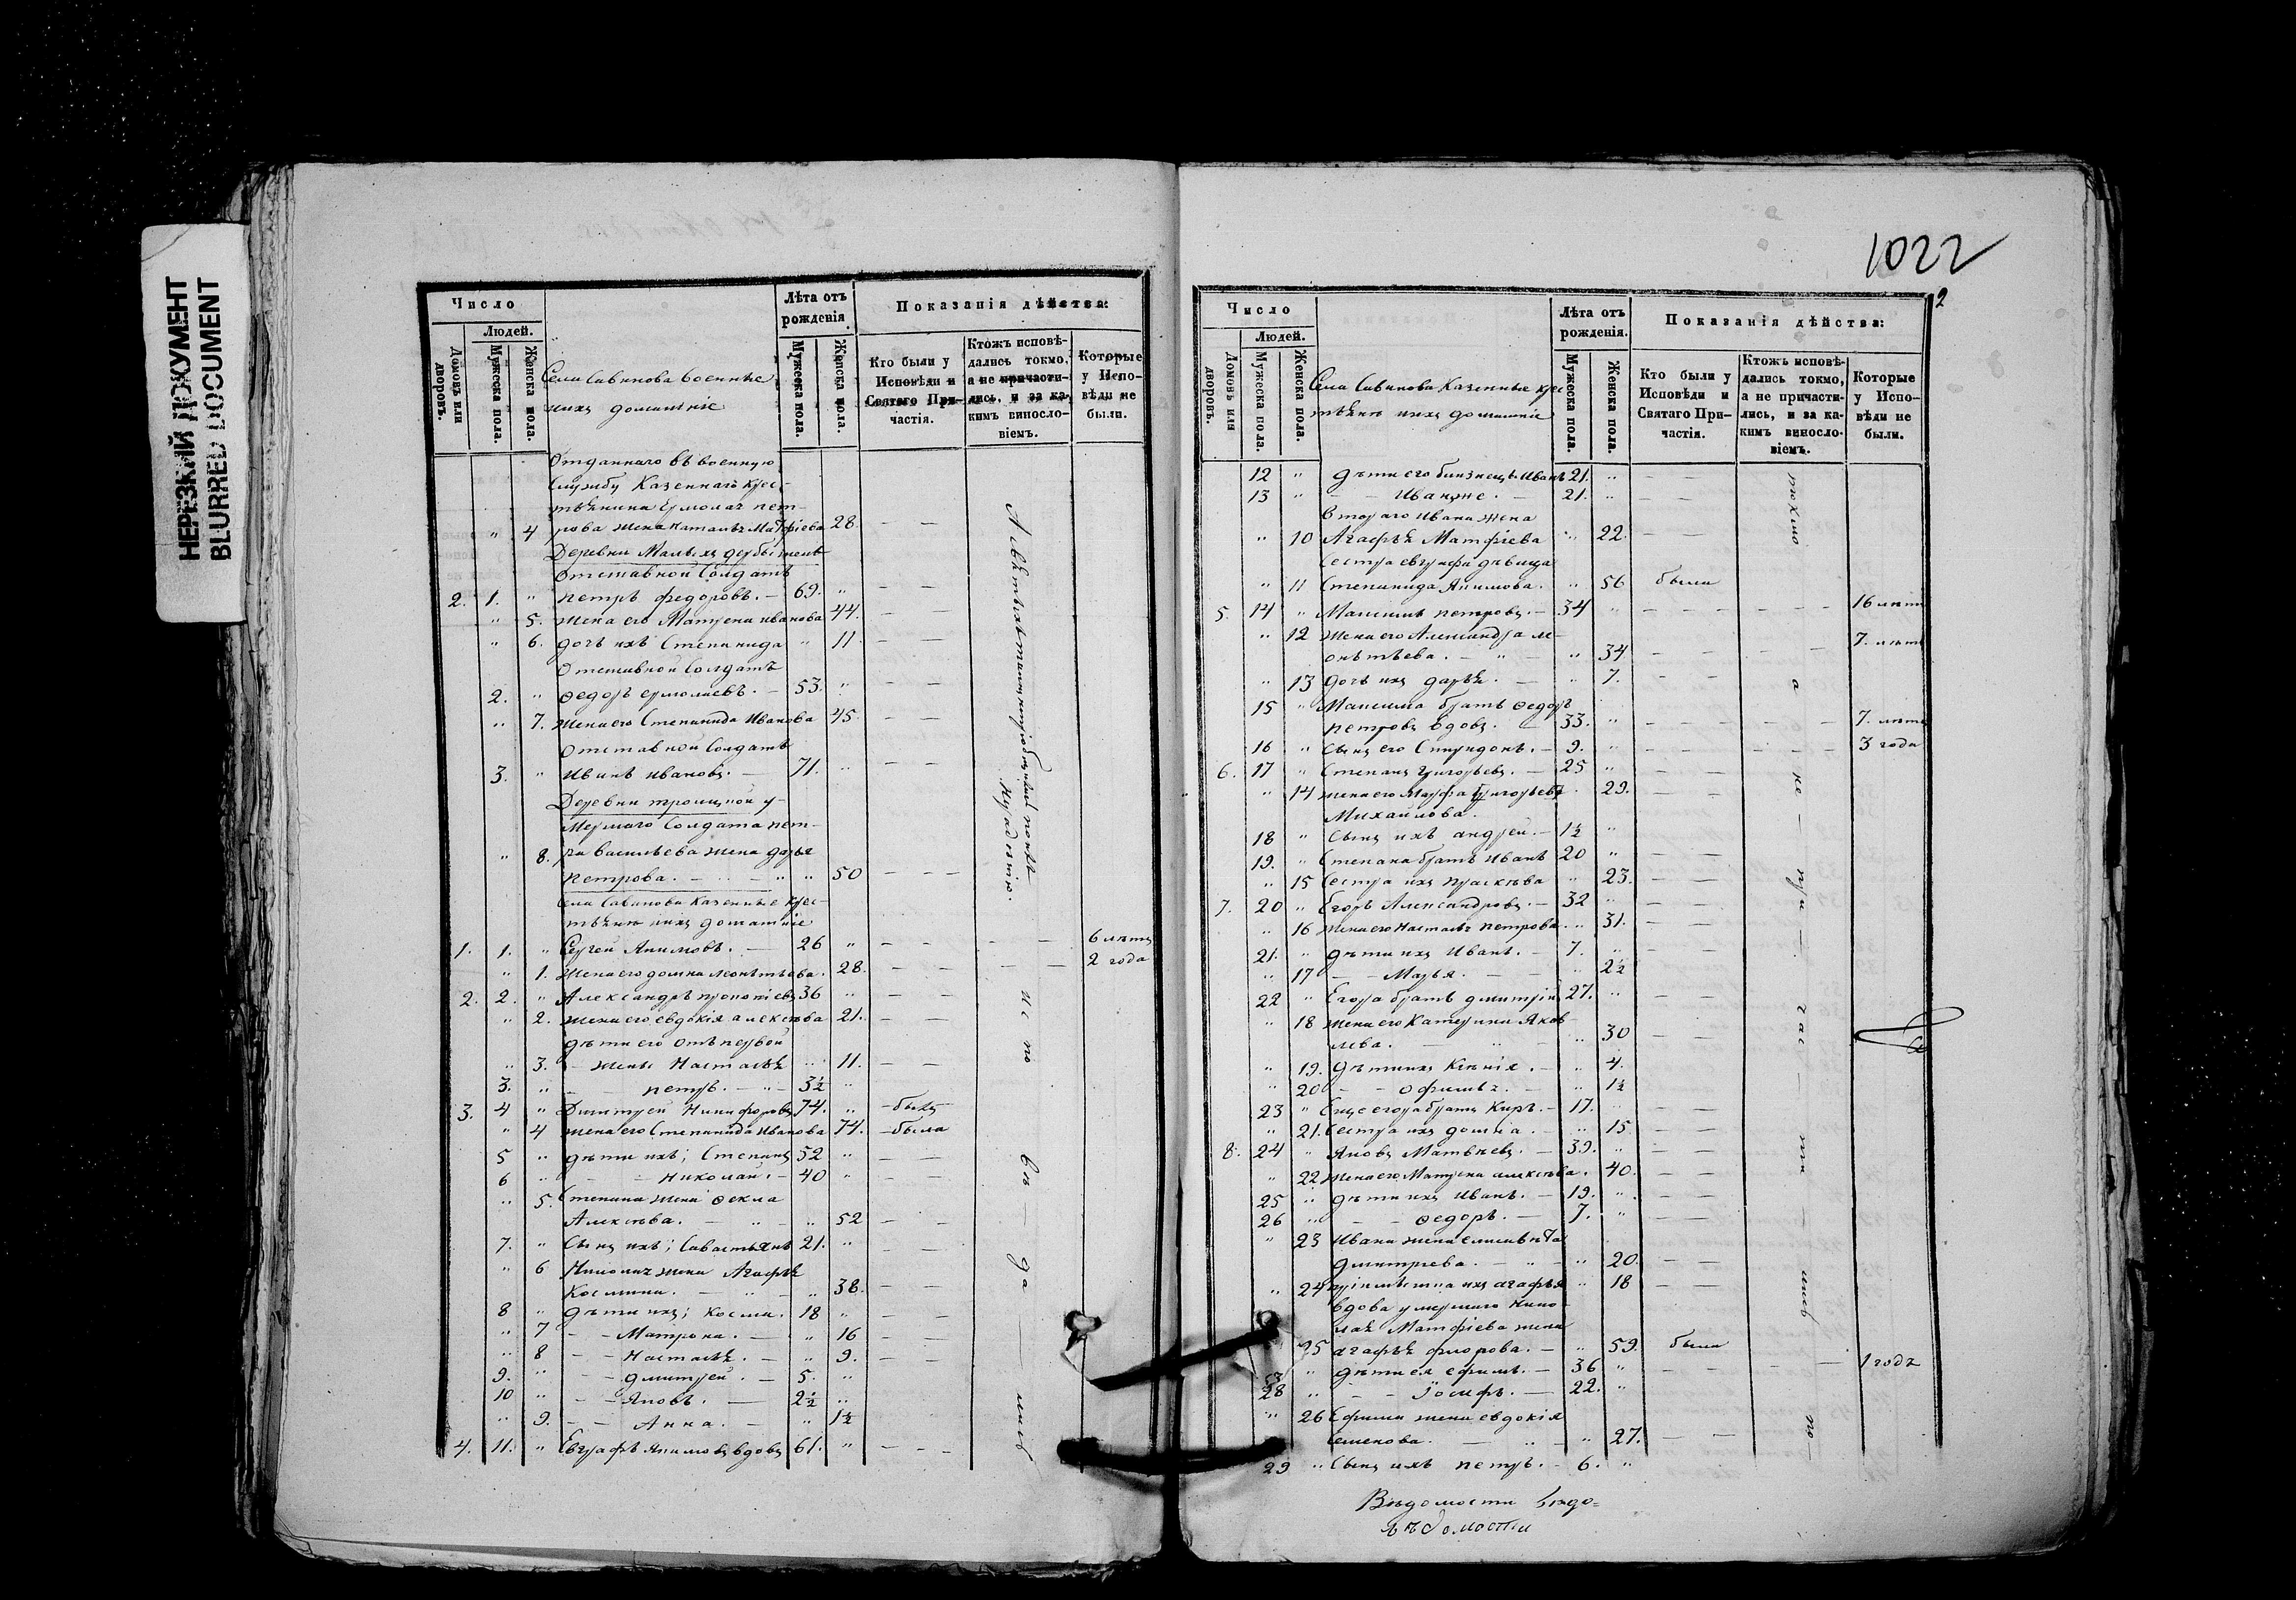 НЕРЕЗКИЙ ДОКУМЕНТ
BLURRED DOCUMENT
Число
Людей.
Домовъ или дворовъ.
Мужеска пола.
Женска пола.
Села Савинова военные
и ихъ домашніе
Лѣта отъ рожденія.
Мужеска пола.
Женска пола.
Показанія дѣйства:
Кто были у Исповѣди и Святаго Причастія.
Ктожъ исповѣдались токмо, а не причастились, и за какимъ винословіемъ.
Которые у Исповѣди не были.
Отданнаго въ военную
службу Казеннаго крес-
тьянина Ермолая пет-
" 4 рова жена наталья Матфіева 28. — —
Деревни Малыхъ
Отставной солдатъ
2. 1. " петръ федоровъ. — 69. " — —
" 5. жена его Матрена иванова 44. — —
" 6. дочь ихъ Степанида " 11 — —
Отставной солдатъ
2. " Ѳедоръ ермолаевъ. — 53. " — —
" 7. жена его Степанида Иванова 45. — —
Отставной солдатъ
3. " Иванъ ивановъ. — 71. " — —
Деревни троицкой у-
мершаго солдата пет-
" 8. ра васильева жена дарья
петрова. — " — " " 50 — — —
села Савинова Казенные крес-
тьяне и ихъ домашніе
1. 1. " Сергей Якимовъ. — 26 " — — — 6 лѣтъ
" 1. жена его домна леонтьева. 28. — — — — 2 года
2. 2. " Александръ прокопіевъ 36 " — —
" 2. жена его евдокія алексѣева 21. — —
дѣти его отъ первой
" 3. — жены Настасья " 11. — —
3. " — петръ. — " — 3½ "
3. 4 " Димитрей Никифоровъ 74. " — былъ
" 4 жена его Степанида Иванова 74. — была
5 " дѣти ихъ; Степанъ 52 " — —
6 " — — николай. — 40 " — —
" 5. Степана жена Ѳекла
Алексѣева. — " — " 52 — —
7. " Сынъ ихъ; Савастьянъ 21. " — —
" 6 Николая жена Агафья
Космина. — " — " 38. — —
8 " дѣти ихъ; Косма. 18 " — —
" 7 — — Матрона. — " 16 — —
" 8 — — Настасья. — " 9. — —
9. " — — дмитрей. — 5. "
10 " — — Яковъ. — 2½ "
" 9. — — Анна. — " 1½
4. 11. " Евграфъ Якимовъ вдовъ 61. " — — —
1022
2
Число
Людей.
Домовъ или дворовъ.
Мужеска пола.
Женска пола.
Села Савинова Казенные крес
тьяне и ихъ домашніе
Лѣта отъ рожденія.
Мужеска пола.
Женска пола.
Показанія дѣйства:
Кто были у Исповѣди и Святаго Причастія.
Ктожъ исповѣдались токмо, а не причастились, и за какимъ винословіемъ.
Которые у Исповѣди не были.
12 " дѣти его близнецы Иванъ 21. " — —
13 " — — Иванже. — 21. " — —
Втораго ивана жена
" 10 Агафья Матфіева " 22. — —
Сестра евграфа дѣвица
" 11 Степанида Якимова. " 56 была
5. 14 " Максимъ петровъ. — 34 " — — — — — 16 лѣтъ
" 12 жена его Александра ле-
онтьева. — " — " 34 — — — — 7. лѣтъ
" 13 дочь ихъ дарья. — " 7.
15 " Максима братъ Ѳедоръ
петровъ вдовъ. — 33. " — — — — 7. лѣтъ
16 " Сынъ его Спиридонъ. — 9. " — — — — 3 года
6. 17 " Степанъ григорьевъ. — 25 " — —
" 14 жена его Марфа григорьева " 29. — —
Михайлова.
18 " Сынъ ихъ андрей. — 1½ "
19. " Степана братъ Иванъ 20 " — —
" 15 Сестра ихъ прасковья " 23. — —
7. 20 " Егоръ Александровъ. — 32 " — —
" 16 жена его Настасья петрова. " 31. — —
21. " дѣти ихъ Иванъ. — 7. "
" 17 — — Марья. — — " 2½
22 " Егора братъ дмитрій 27. " — —
" 18 жена его Катерина Яков
лева. — " — " 30 — —
" 19. дѣти ихъ Ксенія. — " 4.
" 20 — — офимья. — " 1½
23 " Еще егора братъ Киръ. — 17. " — —
" 21. Сестра ихъ домна. — " 15 — —
8. 24 " Яковъ Матвѣевъ. — 39. " — —
" 22 жена его Матрена алексѣева. " 40. — —
25 " дѣти ихъ Иванъ. — 19. " — —
26 " — — Ѳедоръ. — 7. " — —
" 23 Ивана жена елисавѣта
дмитріева. — " — " 20. — —
" 24 ихъ агафья " 18 — —
вдова умершаго Нико-
лая Матфіева жена
25 агафья флорова. — " 59. была
" дѣти ея ефимъ. — 36 " — — — — 1 годъ
28 " — — Іосифъ. — 22. "
" 26 Ефима жена евдокія
Семенова. — " — " 27. — —
29 " Сынъ ихъ петръ. — 6. "
Вѣдомости
вѣдомости